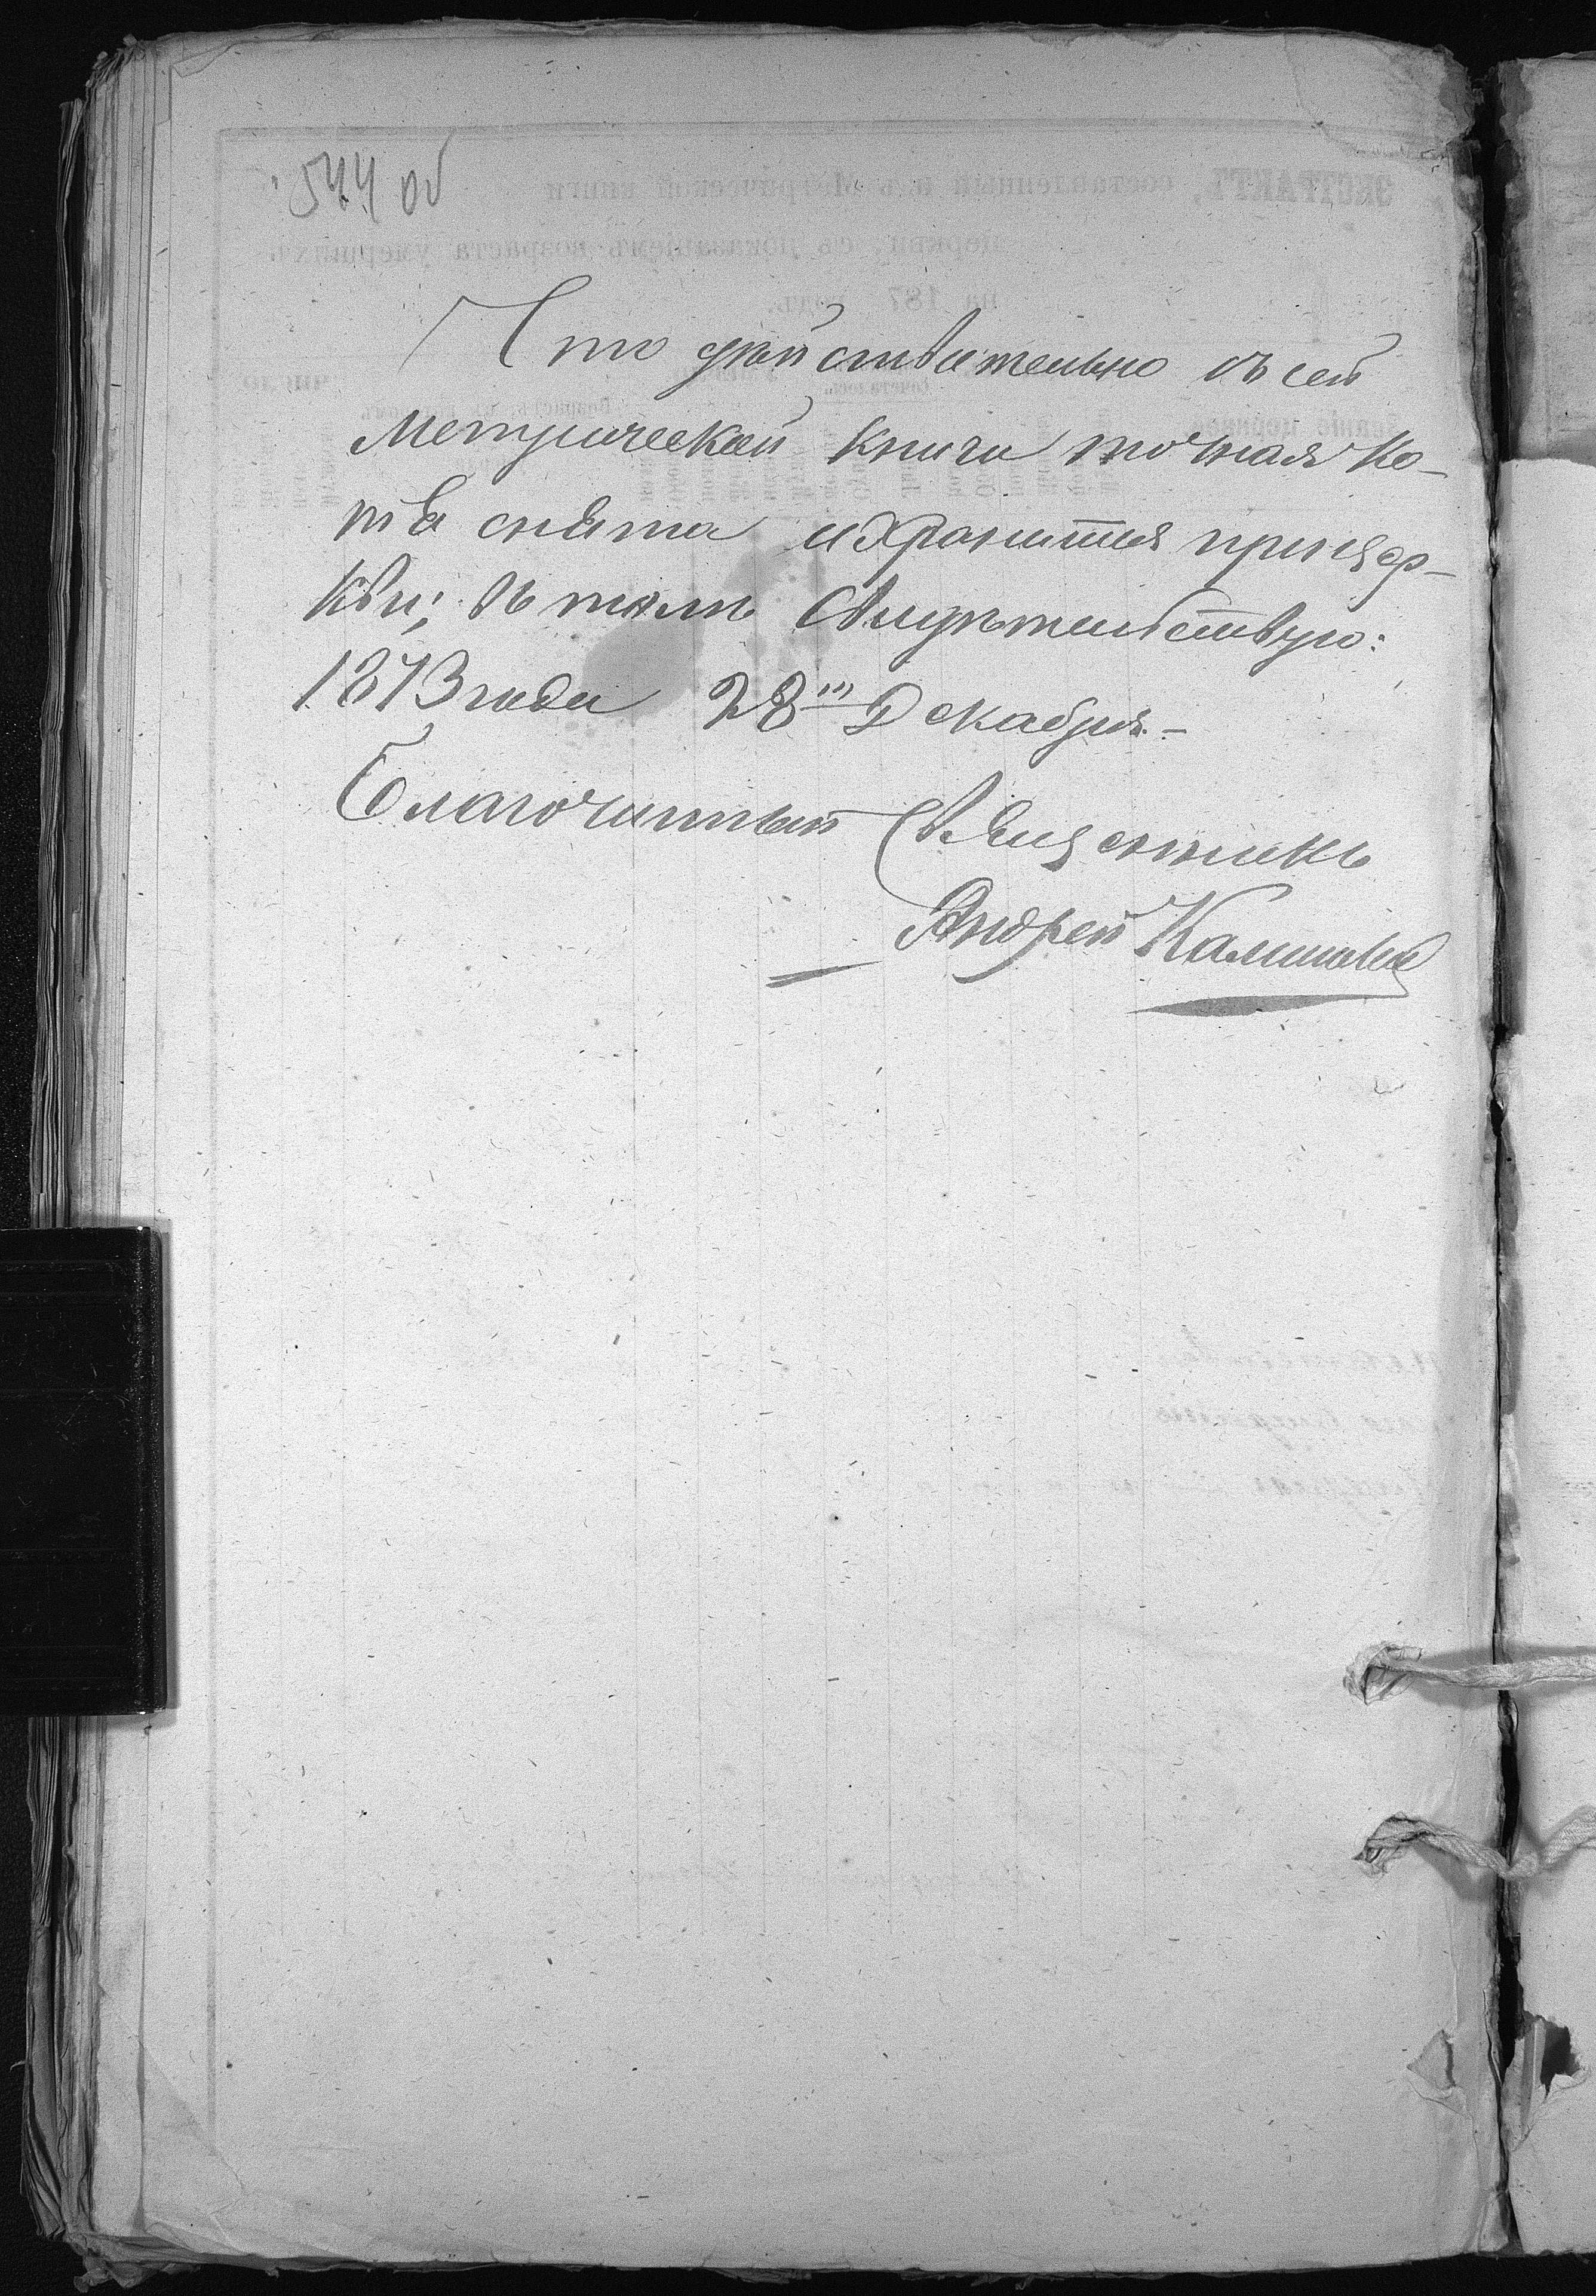 544 об
Что действительно съ сей
Метрической книги точная ко-
пія снята и хранится при цер-
кви; въ томъ свидѣтельствую:
1873 года 28го Декабря.–
Благочинный Священникъ
Андрей